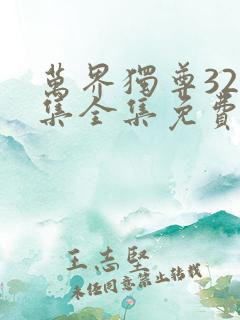 萬界獨尊32
集全集免費
王志堅
未经同意禁止转载